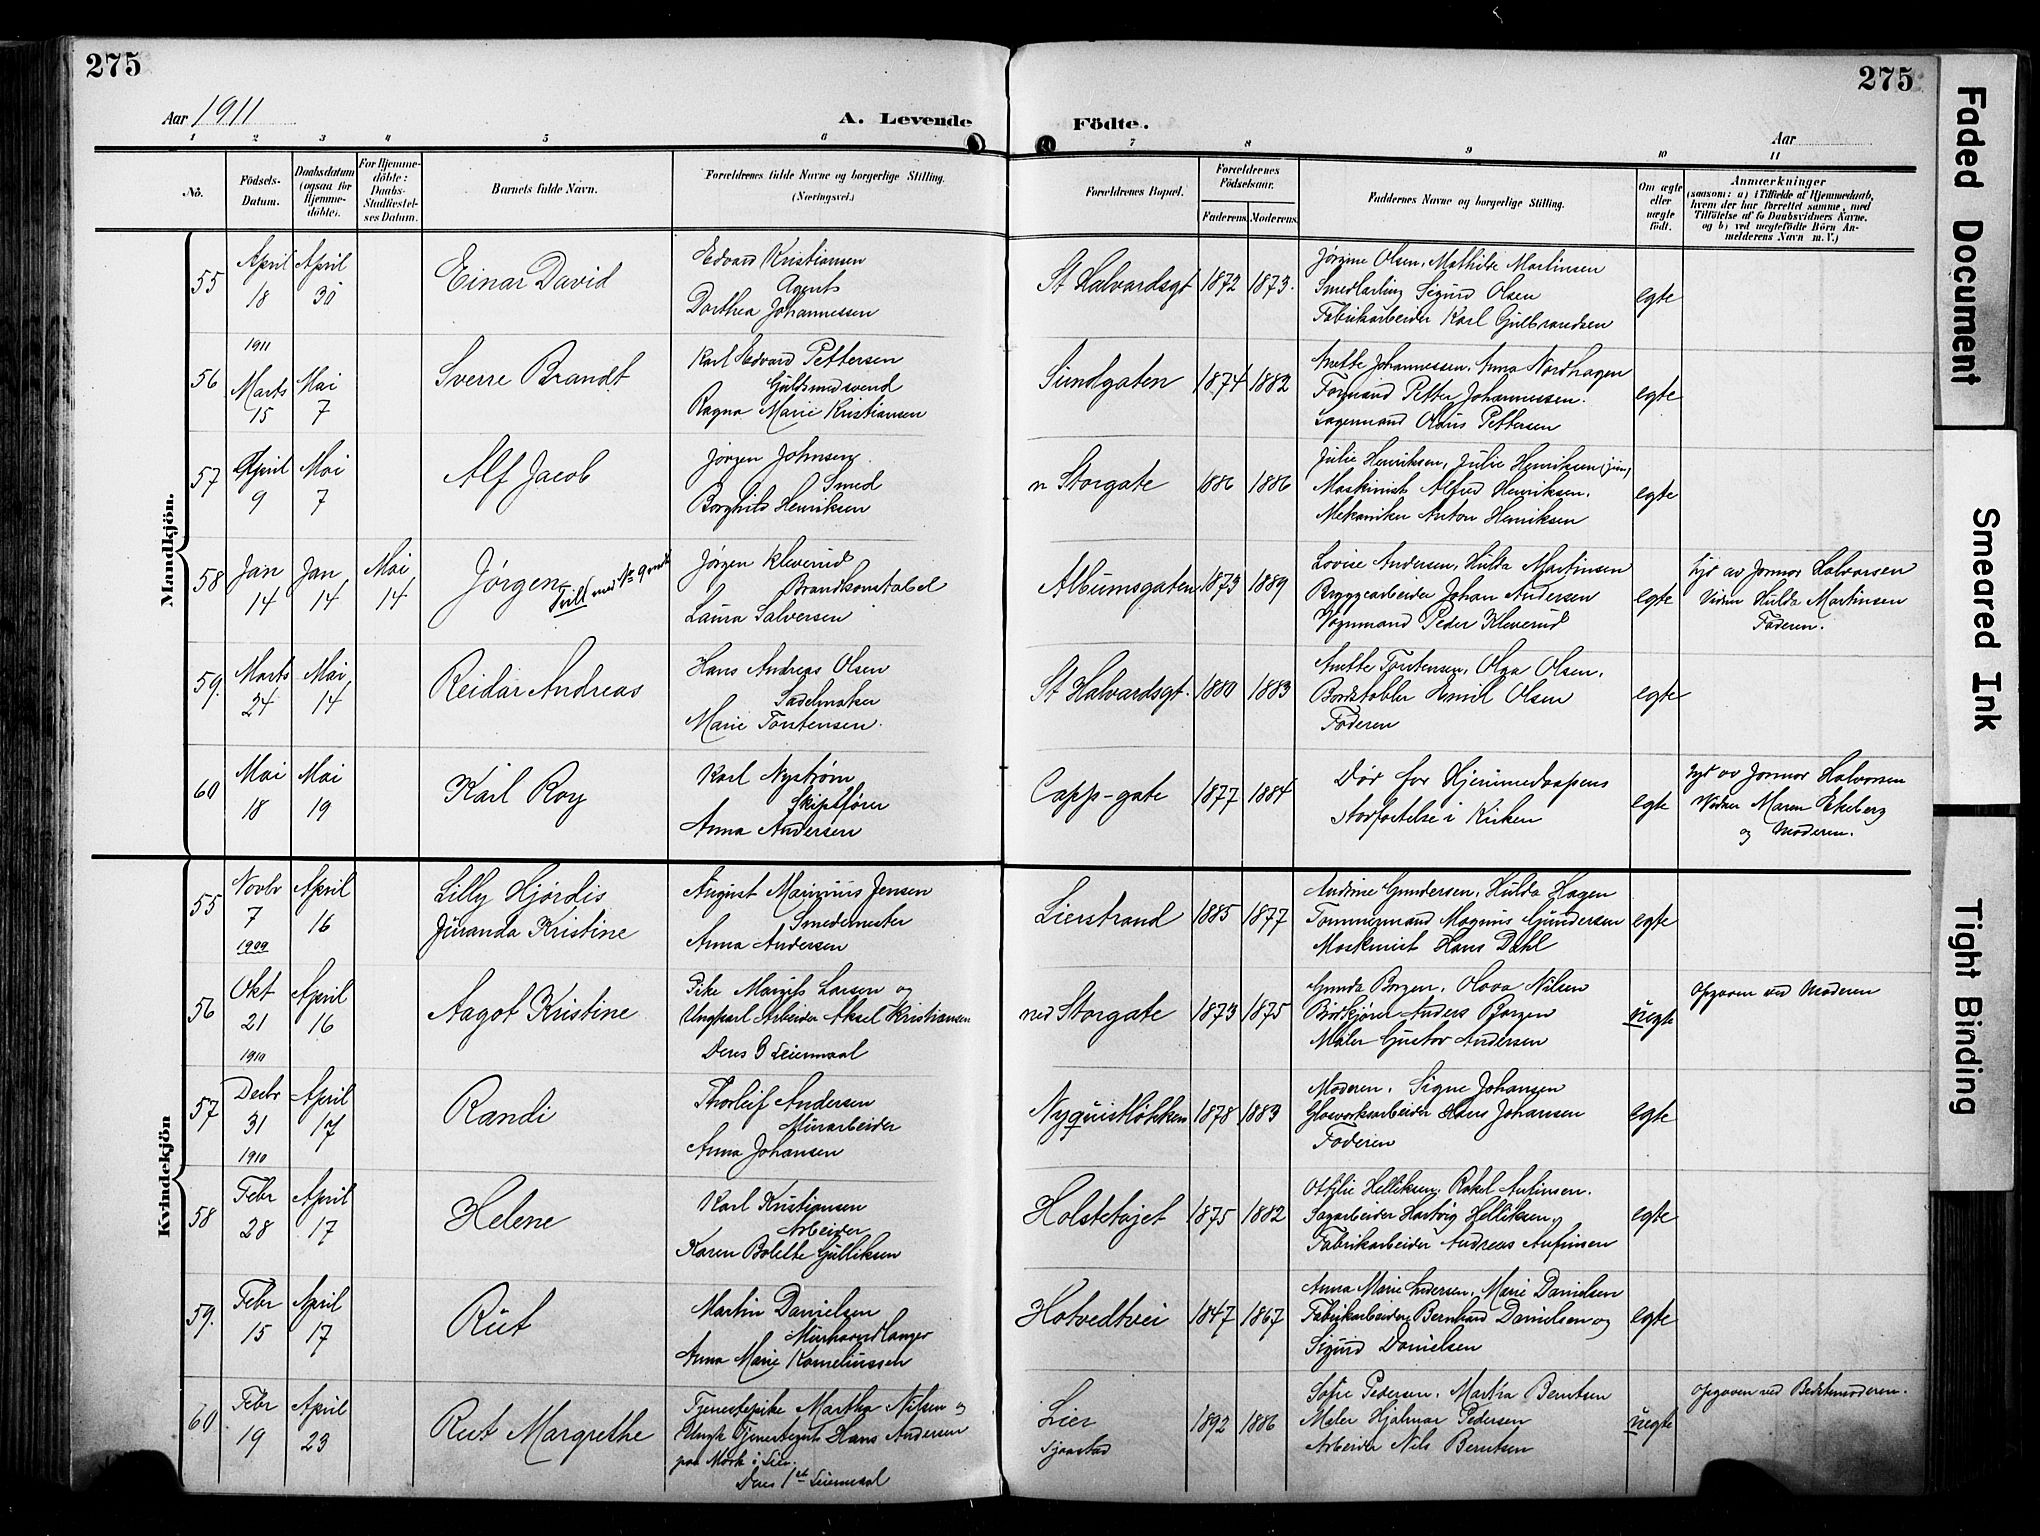 275
275
Aar 1911
A. Levende
Födte.
Aar
1 2 3 4 5 6 7 8 9 10 11
No.
Födsels-
Datum.
Daabsdatum
(ogsaa for
Hjemme-
döbte).
For Hjemme-
döbte:
Daabs-
Stadfæstel-
ses Datum.
Barnets fulde Navn.
Forældrenes fulde Navne og borgerlige Stilling.
(Næringsvei.)
Forældrenes Bopæl.
Forældrenes
Födselsaar.
Faderens. Moderens.
Faddernes Navne og borgerlige Stilling.
Om ægte
eller
uægte
födt.
Anmærkninger
(saasom: a) i Tilfælde af Hjemmedaab,
hvem der har forrettet samme, med
Tilföielse af to Daabsvidners Navne.
og b) ved uægtefödte Börn An-
melderens Navn m. V.)
Mandkjön.
55
April
18
April
30
Einar David
Edvard Kristiansen
Agent
Dorthea Johannessen
St Halvardsgt 1872 1873.
Jørgine Olsen, Mathilde Martinsen
Smedlærling Sigurd Olsen
Fabrikarbeider Karl Gulbrandsen
egte
56
1911
Marts
15
Mai
7
Sverre Brandt
Karl Edvard Pettersen
Guldsmedsvend
Ragna Marie Kristiansen
Sundgaten 1874 1882
Anette Johannessen, Anna Nordhagen
Formand Petter Johannessen.
Lagermand Olaus Pettersen
egte
57
April
9
Mai
7
Alf Jacob
Jørgen Johnsen
Smed
Borghild Henriksen
n Storgate 1886 1886
Julie Henriksen, Julie Henriksen (jun)
Maskinist Alfred Henriksen,
Mekaniker Anton Henriksen
egte
58
Jan
14
Jan
14
Mai
14
Jørgen
Tvill. med No 9
Jørgen Kleverud
Brandkonstabel
Laura Salversen
Albumsgaten 1873 1889
Lovise Andersen, Hulda Martinsen
Bryggearbeider Johan Andersen
Vognmand Peder Kleverud
egte
hjd av Jormor Halvorsen
Vidner Hulda Martinsen
Faderen.
59.
Marts
24
Mai
14
Reidar Andreas
Hans Andreas Olsen
Sadelmaker
Marie Torstensen.
St Halvardsgt. 1880 1883
Anette Torstensen, Olga Olsen.
Bordstabler Emil Olsen
Faderen
egte
60
Mai
18
Mai
19
Karl Roy
Karl Nystrøm
Skipsfører
Anna Andersen
Capp-gate 1877 1884
Død før Hjemmedaapens
stadfæstelse i Kirken
egte
hjd av Jormor Halvorsen
Vidner Maren Ekeberg
og Moderen.
Kvindekjön
55
Novbr
7
1909
April
16
Lilly Hjørdis
Juranda Kristine
August Marinius Jensen
Smedemester
Anna Andersen
Lierstrand 1885 1877
Andrine Gundersen, Hulda Hagen
Tømmermand Magnus Gundersen
Maskinist Hans Dahl
egte
56
Okt
21
1910
April
16
Aagot Kristine
Pike Marsits Larsen og
Ungkarl Arbeider Aksel Kristiansen
Deres 3 Leiermaal
ned Storgate 1873 1875
Gunda Borgen, Olava Nilsen
Bordkjører Anders Borgen
Maler Gustav Andersen
uegte
Opgaven ved Moderen
57
Decbr
31
1910
April
17
Randi
Thorleif Andersen
Murarbeider
Anna Johansen
Nyquistløkken 1878 1883
Moderen. Signe Johansen
Glasverksarbeider Hans Johansen
Faderen
egte
58
Febr
28
April
17
Helene
Karl Kristiansen
Arbeider
Karen Bolette Gulliksen
Holstetøjet 1875 1882
Ottilie Helliksen, Rakel Anfinsen.
Sagarbeider Hartvig Helliksen,
Fabrikarbeider Andreas Anfinsen
egte
59.
Febr
15
April
17
Rut
Martin Danielsen
Murhaandlanger
Anna Marie Korneliussen
Hotvedtvei 1847 1867
Anna Marie Andersen, Marie Danielsen
Fabrikarbeidere Bernhard Danielsen og
Sigurd Danielsen
egte
60
Febr
19
April
23
Rut Margrethe
Tjenestepike Martha Nilsen og
Ungk Tjenestegut Hans Andersen
paa Mørk i Lier.
Deres 1st Leiermaal
Lier
Sjaastad
1892 1886
Sofie Pedersen, Martra Berntsen
Maler Hjalmar Pedersen
Arbeider Nils Berntsen
uegte
Opgaven ved Bedstemoderen.
Faded Document
Smeared Ink
Tight Binding